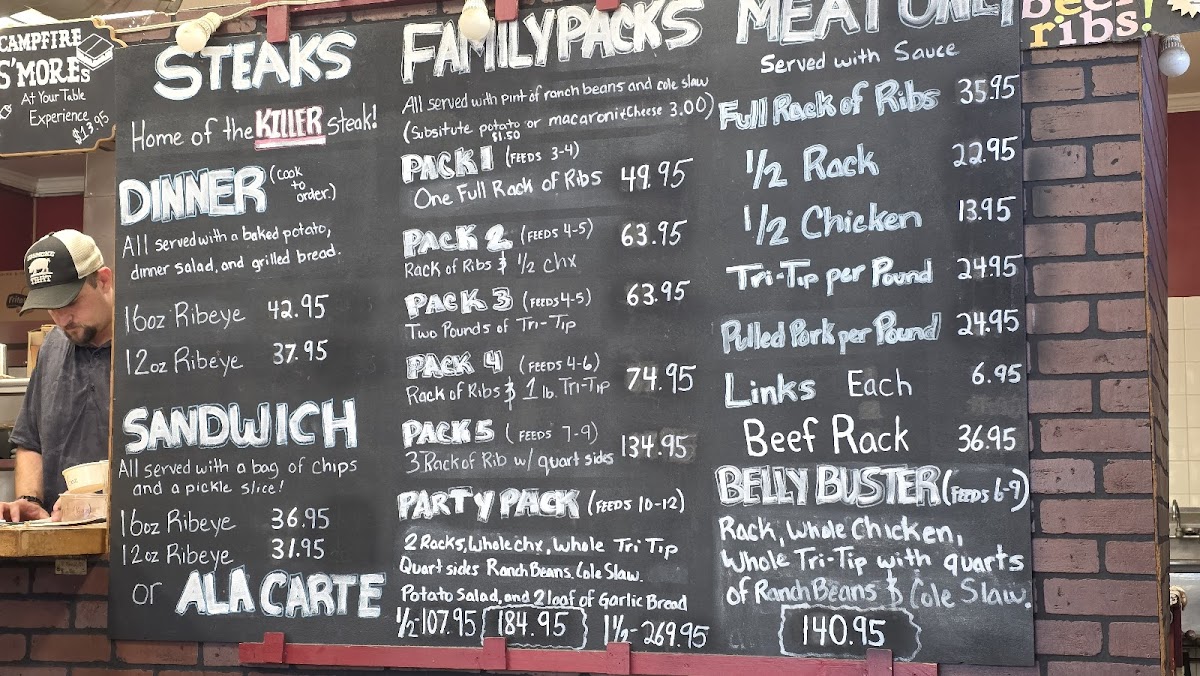 CAMPFIRE
S'MOREs
At Your Table
Experience
$13.95
STEAKS
Home of the KILLER Steak!
DINNER (Cook to order.)
All served with a baked potato,
dinner salad, and grilled bread.
16oz Ribeye 42.95
12oz Ribeye 37.95
SANDWICH
All served with a bag of chips
and a pickle slice!
16oz Ribeye 36.95
12oz Ribeye 31.95
or ALA CARTE
FAMILY PACKS
All served with pint of ranch beans and cole slaw
(Subsitute potato or macaroni & Cheese 3.00)
$1.50
PACK 1 (FEEDS 3-4)
One Full Rack of Ribs 49.95
PACK 2 (FEEDS 4-5) 63.95
Rack of Ribs & 1/2 chx
PACK 3 (FEEDS 4-5) 63.95
Two Pounds of Tri-Tip
PACK 4 (FEEDS 4-6) 74.95
Rack of Ribs & 1 lb. Tri-Tip
PACK 5 (FEEDS 7-9) 134.95
3 Rack of Rib w/ quart sides
PARTY PACK (FEEDS 10-12)
2 Racks, Whole chx, Whole Tri Tip
Quart sides Ranch Beans. Cole Slaw.
Potato Salad, and 2 loaf of Garlic Bread
1/2 107.95 184.95 1 1/2 - 269.95
MEAT ONLY
Served with Sauce
Full Rack of Ribs 35.95
1/2 Rack 22.95
1/2 Chicken 13.95
Tri-Tip per Pound 24.95
Pulled Pork per Pound 24.95
Links Each 6.95
Beef Rack 36.95
BELLY BUSTER (FEEDS 6-9)
Rack, Whole Chicken,
Whole Tri-Tip with quarts
of Ranch Beans & Cole Slaw.
140.95
beef
ribs!